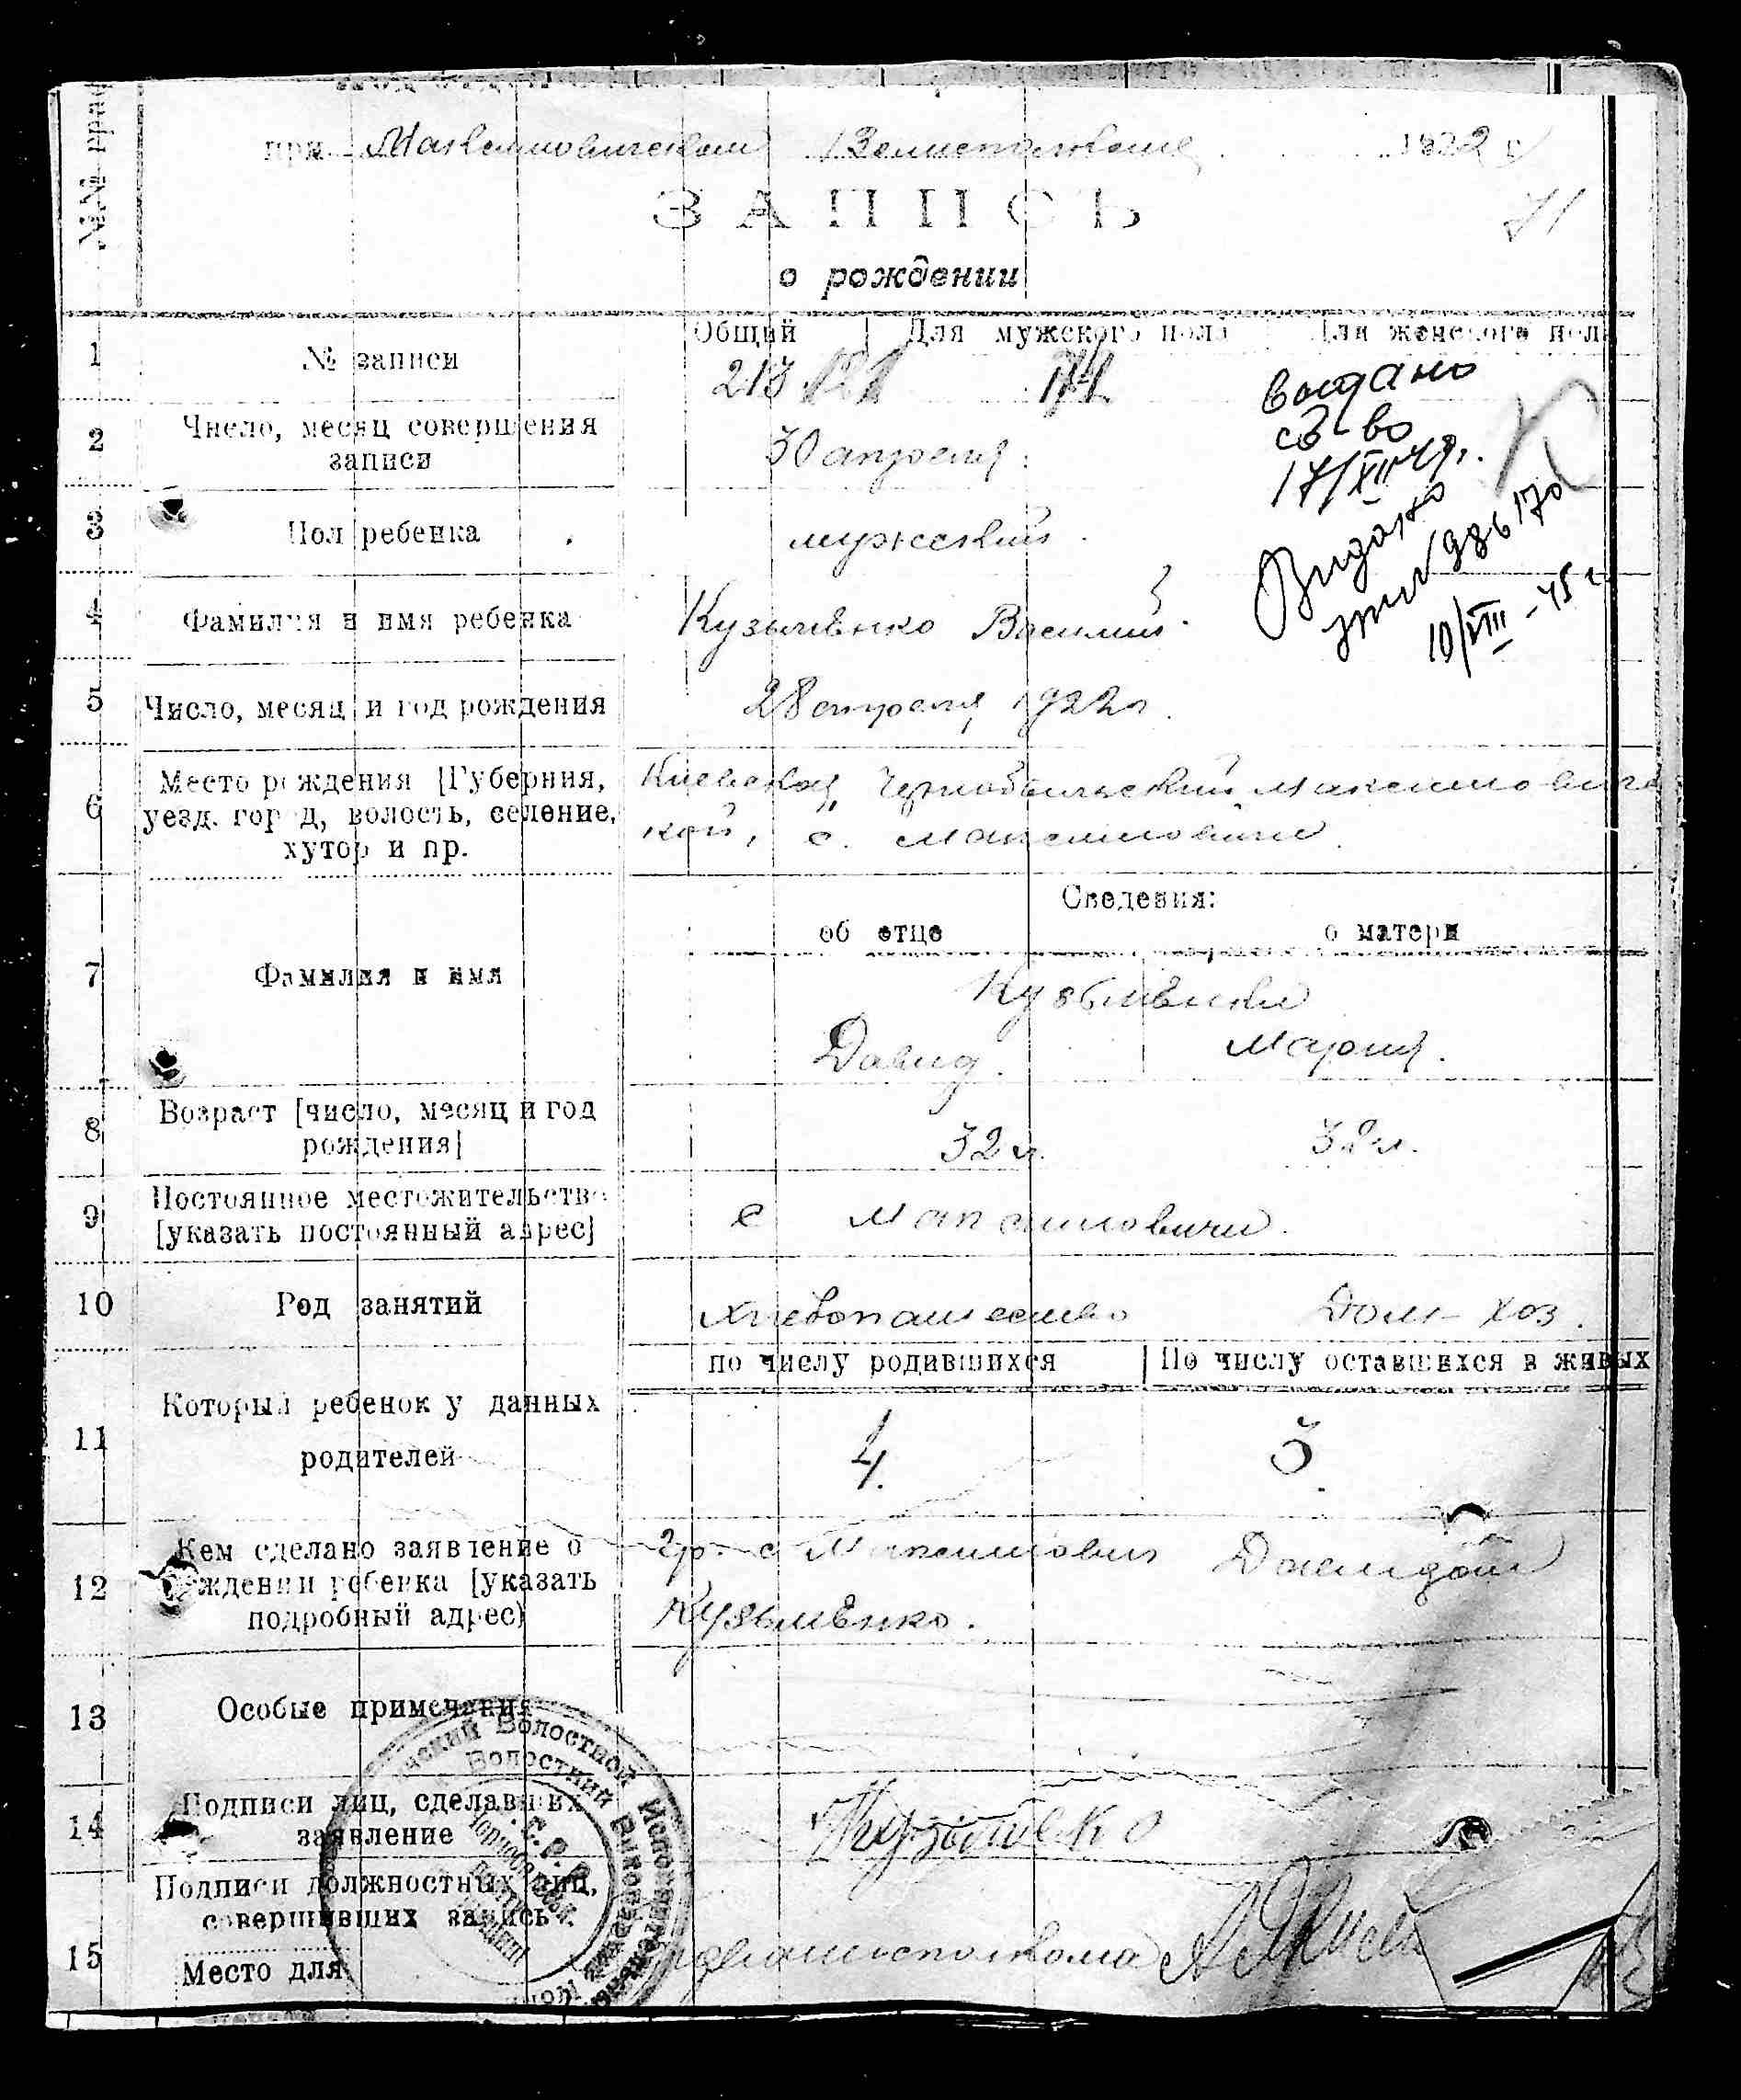 №№ граф
при Максимовическом Волисполкоме 1922 г
71
ЗАПИСЬ
о рождении
Общий Для мужского пола Для женского пола
1 № записи 213 121
2 Число, месяц совершения записи 30 апреля
выдано
св-во
17/XII 49г.
3 Пол ребенка мужеский
Видано
986170
10/VIII-45 г
4 Фамилия и имя ребенка Кузьменко Василий
5 Число, месяц и год рождения 28 апреля 1922г.
6 Место рождения [Губерния,
уезд. город, волость, селение,
хутор и пр.
Киевская, Чернобыльский, Максимовичс
кой, с. Максимовичи
Сведения:
об отце о матери
7 Фамилия и имя
Кузьменки
Давид. Мария.
8 Возраст [число, месяц и год
рождения]
32 г. 32 г.
9 Постоянное местожительство
[указать постоянный адрес]
с Максимовичи.
10 Род занятий Хлебопашество Дом-хоз.
по числу родившихся По числу оставшихся в живых
11 Который ребенок у данных
родителей
4. 3.
12 Кем сделано заявление о
рождении ребенка [указать
подробный адрес)
гр. с Максимович
Кузьменко.
13 Особые примечания
14 Подписи лиц, сделавших
заявление
Кузьменко
15 Подписи должностных лиц,
совершивших запись.
Место для
Волостной Исполнительный
Волостний Виконавчий